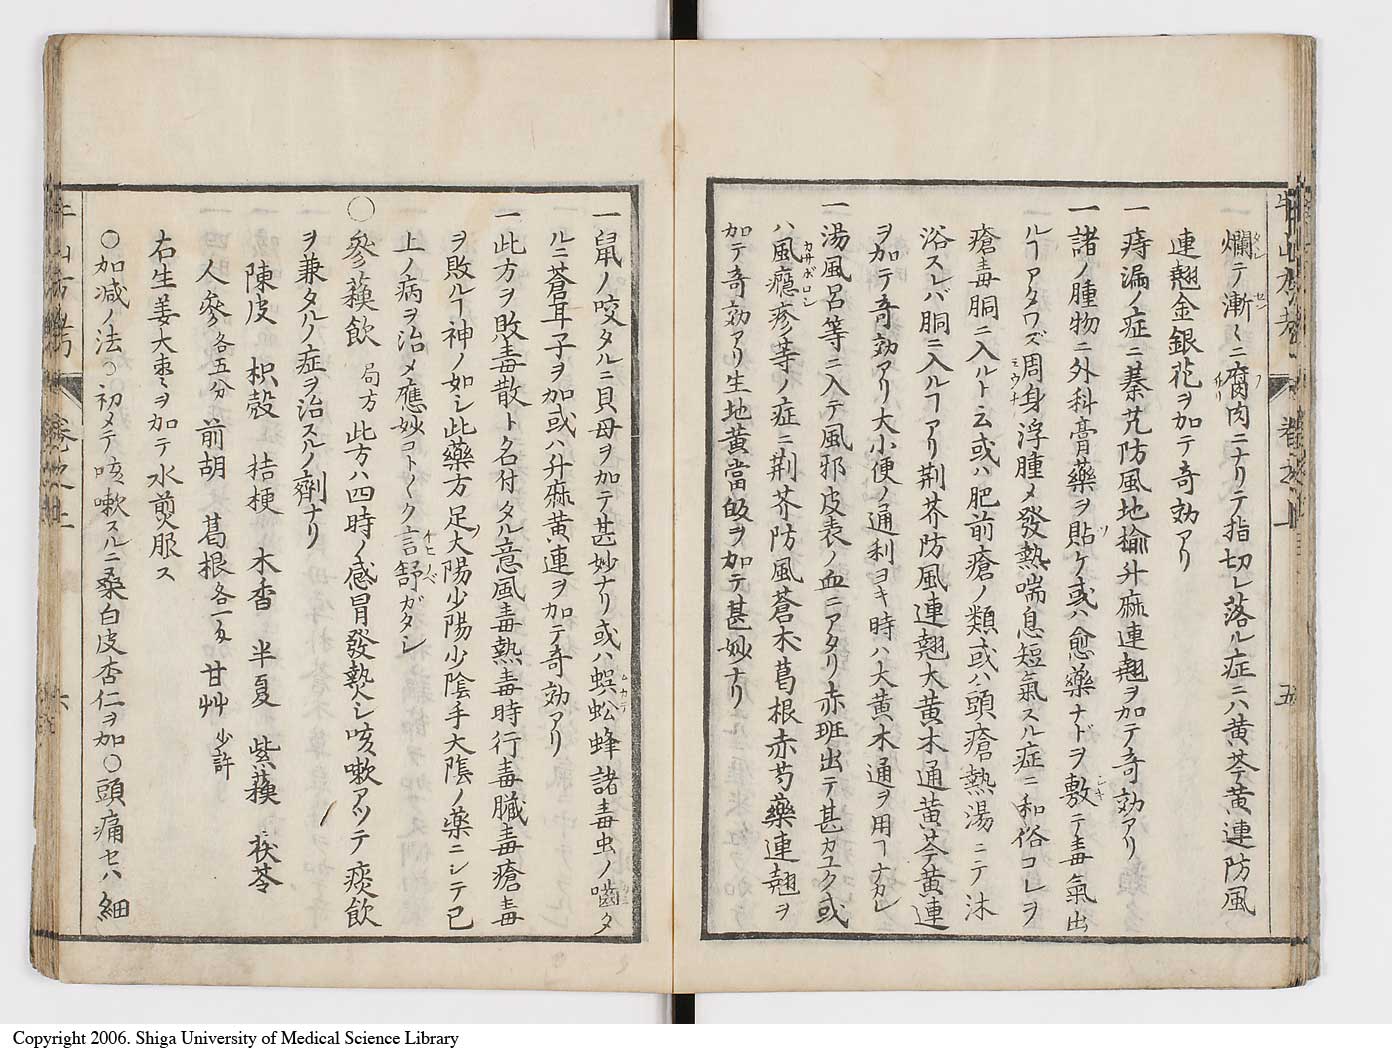 爛テ漸〱ニ腐肉ニナリテ指切レ落ル症ニハ黄芩黄連防風
連翹金銀花ヲ加テ奇効アリ
一痔漏ノ症ニ蓁艽防風地榆升麻連翹ヲ加テ奇効アリ
一諸ノ腫物ニ外科膏藥ヲ貼ケ或ハ愈藥ナドヲ敷テ毒氣出
ルヿアタワズ周身浮腫メ發熱喘息短氣スル症ニ和俗コレヲ
瘡毒胴ニ入ルト云或ハ肥前瘡ノ類或ハ頭瘡熱湯ニテ沐
浴スレバ胴ニ入ルヿアリ荆芥防風連翹大黄木通黄芩黄連
ヲ加テ奇効アリ大小便ノ通利ヨキ時ハ大黄木通ヲ用ヿナカレ
一湯風呂等ニ入テ風邪皮表ノ血ニアタリ赤班出テ甚カユク或
ハ風癮疹等ノ症ニ荆芥防風蒼朮葛根赤芍藥連翹ヲ
加テ奇効アリ生地黄當皈ヲ加テ甚妙ナリ
牛山方考 卷之上 五
一鼠ノ咬タルニ貝母ヲ加テ甚妙ナリ或ハ蜈蚣蜂諸毒虫ノ嚙タ
ルニ蒼耳子ヲ加或ハ升麻黄連ヲ加テ奇効アリ
一此方ヲ敗毒散ト名付タル意風毒熱毒時行毒臓毒瘡毒
ヲ敗ルヿ神ノ如シ此藥方足太陽少陽少陰手大陰ノ藥ニシテ已
上ノ病ヲ治メ應妙コト〱ク言舒ガタシ
〇參蘓飲 局方 此方ハ四時ノ感冒發𤍠シ咳嗽アツテ痰飲
ヲ兼タルノ症ヲ治スルノ劑ナリ
陳皮 枳殻 桔梗 木香 半夏 紫蘓 茯苓
人參各五分 前胡 葛根各一匁 甘艸少許
右生姜大棗ヲ加テ水煎服ス
〇加减ノ法〇初メテ咳嗽スルニ桑白皮杏仁ヲ加〇頭痛セハ細
牛山方考 卷之上 六
Copyright 2006. Shiga University of Medical Science Library